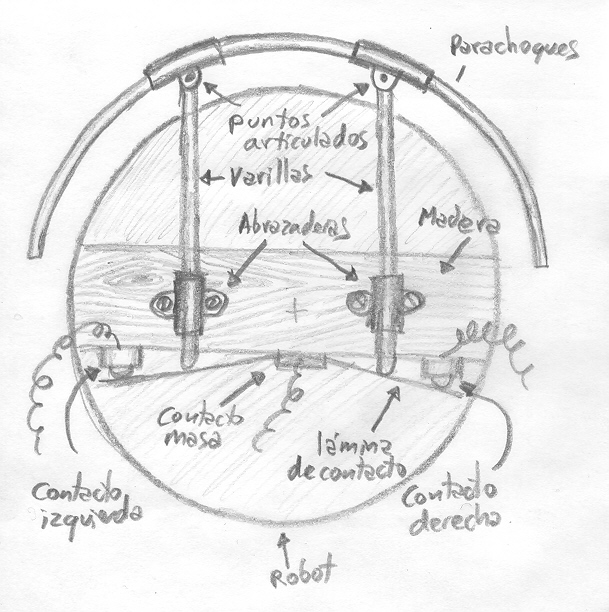 Parachoques
puntos
articulados
Varillas
Abrazaderas
Madera
Contacto
masa
lámina
de contacto
Contacto
izquierda
Contacto
derecha
Robot